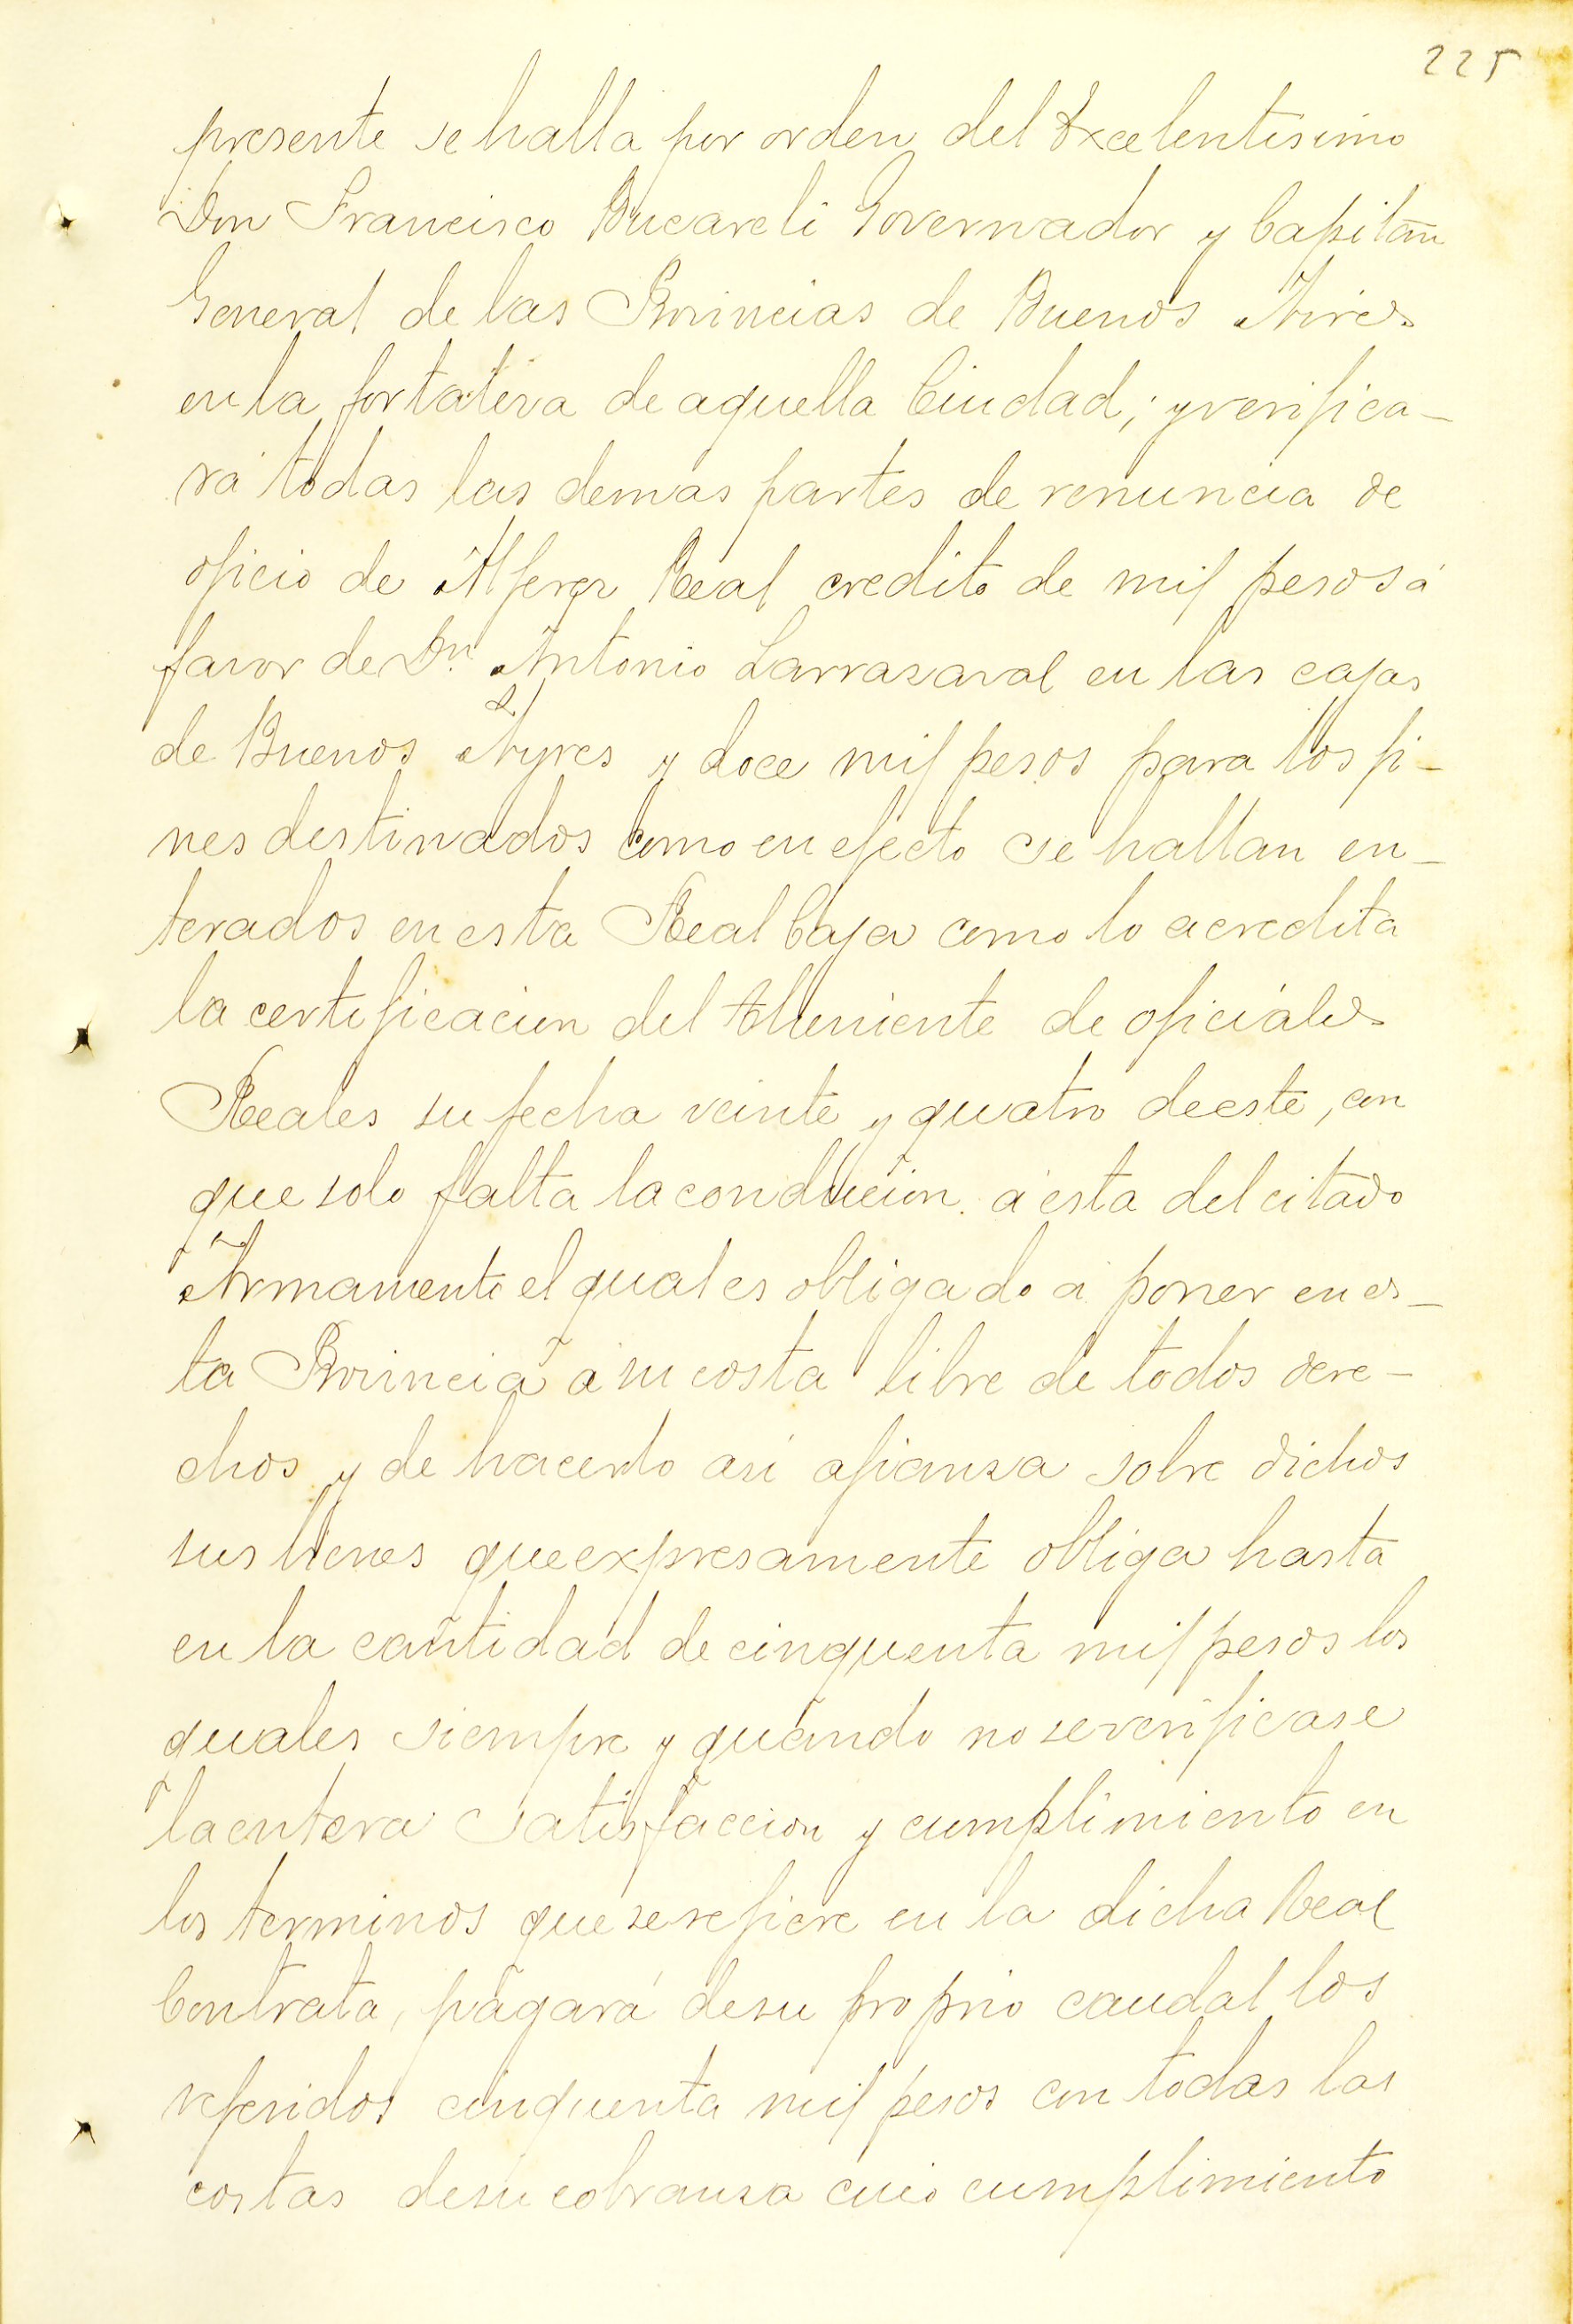 225
presente se halla por orden del Excelentisimo
Don Francisco Bucareli Governador y Capitan
General de las Provincias de Buenos Aires
en la fortaleza de aquella Ciudad; y verifica-
rá todas las demas partes de renuncia de
oficio de Alferez Real credito de mil pesos á
favor de Dn Antonio Larrazaval en las cajas
de Buenos Ayres y doce mil pesos para los fi-
nes destinados como en efecto se hallan en-
terados en esta Real Caja como lo acredita
la certificacion del theniente de oficiales
Reales su fecha veinte y quatro de este, con
que solo falta la condución á esta del citado
Armamento el qual es obligado á poner en es-
ta Provincia á su costa libre de todos dere-
chos y de hacerlo asi afianza sobre dichos
sus bienes que expresamente obliga hasta
en la cantidad de cinquenta mil pesos los
quales siempre y quando no se verificase
la entera satisfaccion y cumplimiento en
los terminos que se refiere en la dicha Real
Contrata, pagará de su proprio caudal los
referidos cinquenta mil pesos con todas las
costas de su cobranza cuio cumplimiento